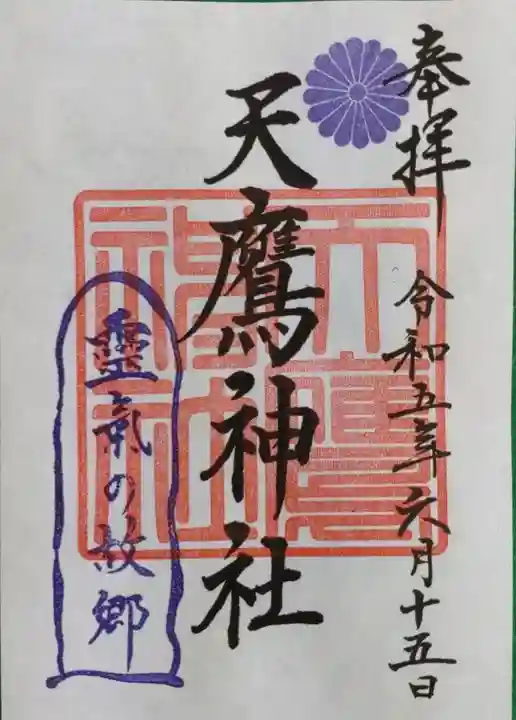 奉拝
令和五年六月十五日
天鷹神社
靈氣の故郷